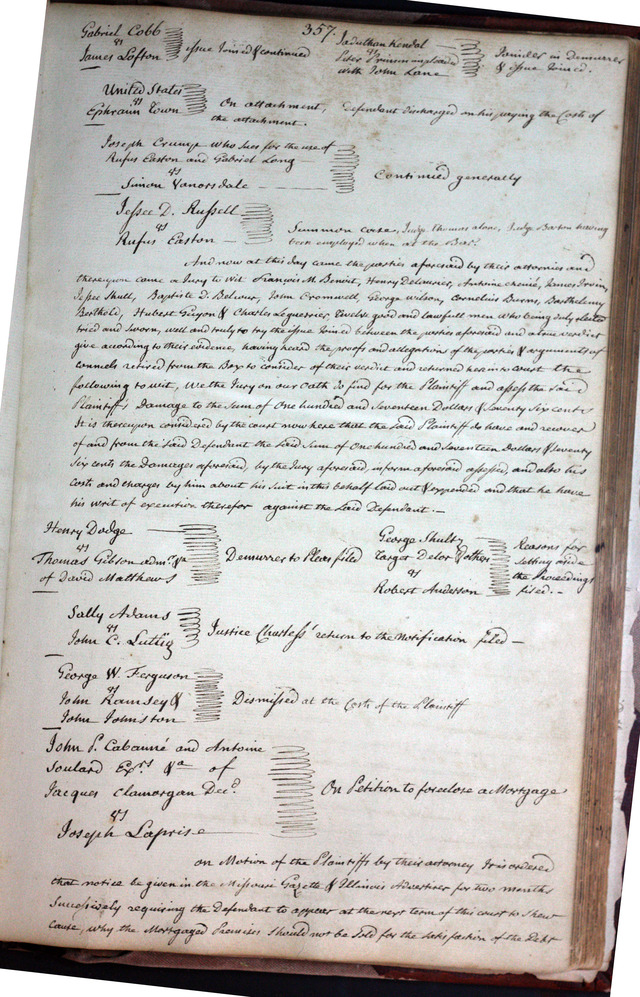 357.
Gabriel Cobb
vs
James Lofton
issue Joined & continued
Jaduthan Kendal
vs
with John Lane
Joinder in Demurrer
& issue Joined.
United States
vs
Ephraim Town
On attachment, Defendant discharged on his paying the Costs of
the attachment.
Joseph Crump who Sues for the use of
Rufus Easton and Gabriel Long
vs
Simon Vanorsdale
Continued generally
Jessee D. Russell
vs
Rufus Easton
Summon case, Judge Thomas alone, Judge Barton having
been employed when at the Bar.
And now at this day came the parties aforesaid by their attornies and
thereupon came a Jury to wit François M. Benoit, Henry Delaurier, Antoine chenié, James Irvin,
Jessee Shull, Baptiste D. Belcour, John Cromwell, George wilson, Cornelius Burns, Barthelemy
Berthold, Hubert Guyon & Charles Leguerrier, twelve good and lawfull men who being duly elected
tried and Sworn, well and truly to try the issue Joined between the parties aforesaid and a true verdict
give according to their evidence, having heard the proofs and allegation of the parties & arguments of
councels retired from the Bar to consider of their verdict and returned herein to court the
following to wit, We the Jury on our Oath do find for the Plaintiff and assess the Said
Plaintiff's Damage to the Sum of One hundred and Seventeen Dollars & Seventy Six cents
It is thereupon considered by the court now here that the Said Plaintiff do have and recover
of and from the Said Defendant the Said Sum of One hundred and Seventeen Dollars & Seventy
Six cents the Damages aforesaid, by the Jury aforesaid in form aforesaid assessed, and also his
costs and charges by him about his Suit in this behalf laid out & expended and that he have
his writ of execution therefor against the Said Defendant.
Henry Dodge
vs
Thomas Gibson adm.r &a
of David Matthews
Demurrer to Pleas filed
George Shultz
target Delor & others
vs
Robert Anderson
Reasons for
setting aside
the Proceedings
filed.
Sally Adams
vs
John C. Luttig
Justice Charless' return to the Notification filed
George W. Ferguson
vs
John Ramsey &
John Johnston
Dismissed at the Costs of the Plaintiff
John P. Cabanné and Antoine
Soulard Exrs &a of
Jacques Clamorgan Dec.d
vs
Joseph Laprise
On Petition to foreclose a Mortgage
on Motion of the Plaintiffs by their attorney It is ordered
that notice be given in the Missouri Gazette & Illinois Advertiser for two months
Successively requiring the Defendant to appear at the next term of this court to Shew
Cause, why the Mortgaged Premises Should not be Sold for the Satisfaction of the Debt